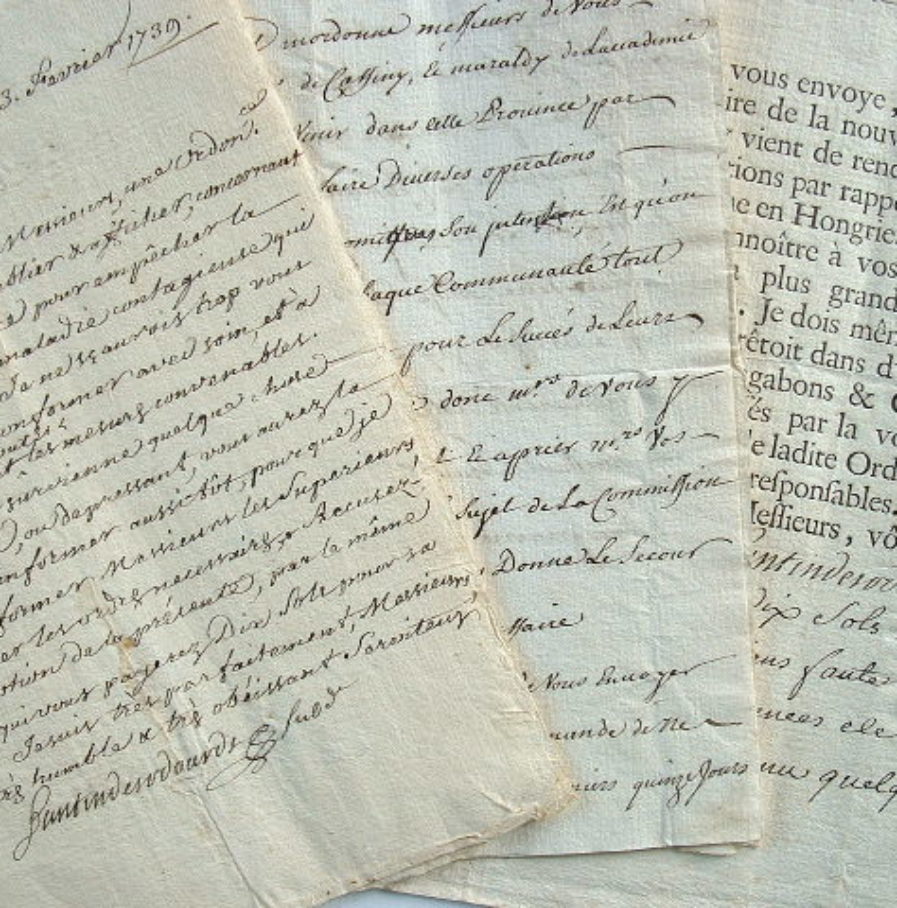 3. Fevrier 1739.
Messieurs, une Ordon.ce
publier & afficher, concernant
pour empêcher la
maladie contagieuse qui
Je ne sçaurois trop vous
conformer avec soin, et à
les mesures convenables.
survienne quelque chose
ou de pressant, vous aurez la
informer aussi tôt, pour que je
informer Messieurs les Superieurs
les ordres necessaires, Accusez
de la présente, par le même
qui vous payerez Dix Sols pour sa
Je suis tres parfaitement, Messieurs,
humble & trés obéissant Serviteur
Subd
mordonne messieurs de vous
de Cassiny, & maraldy de Laccademie
Venir dans cette Province par
faire Diverses operations
Son intention, En qu'on
Chaque Communauté tout
pour Le Succés de Leurs
donc mrs de vous
& apprier mrs Vos
Sujet de La Commission
Donne Le Secour
affaire
Nous Envoyer
de ne
quinze Jours
vous envoye,
ire de la nouv
vient de rend
tions par rappo
ne en Hongrie
nnoître à vos
plus grand
. Je dois mêm
rêtoit dans d'
gabons & 
és par la vo
e ladite Ord
responsables.
Messieurs, vô
Dix Sols
fautes
ele
quelq